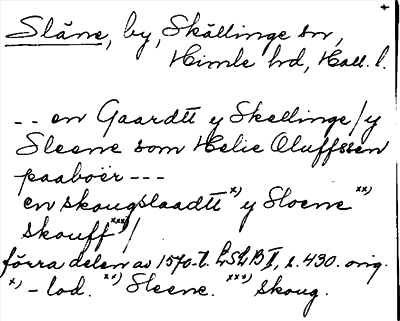 +
Slåne, by, Skällinge sn,
Himle hd, Hall. l.
-- en Gaardtt y Skellinge / y
Sleene som Helie Oluffssen
paaboër ---
en skougslaadtt x) y Sloene xx)
skouff xxx) /
förra delen av 1570-t. LSLB II, s. 430. orig.
x) - lod. xx) Sleene. xxx) skoug.